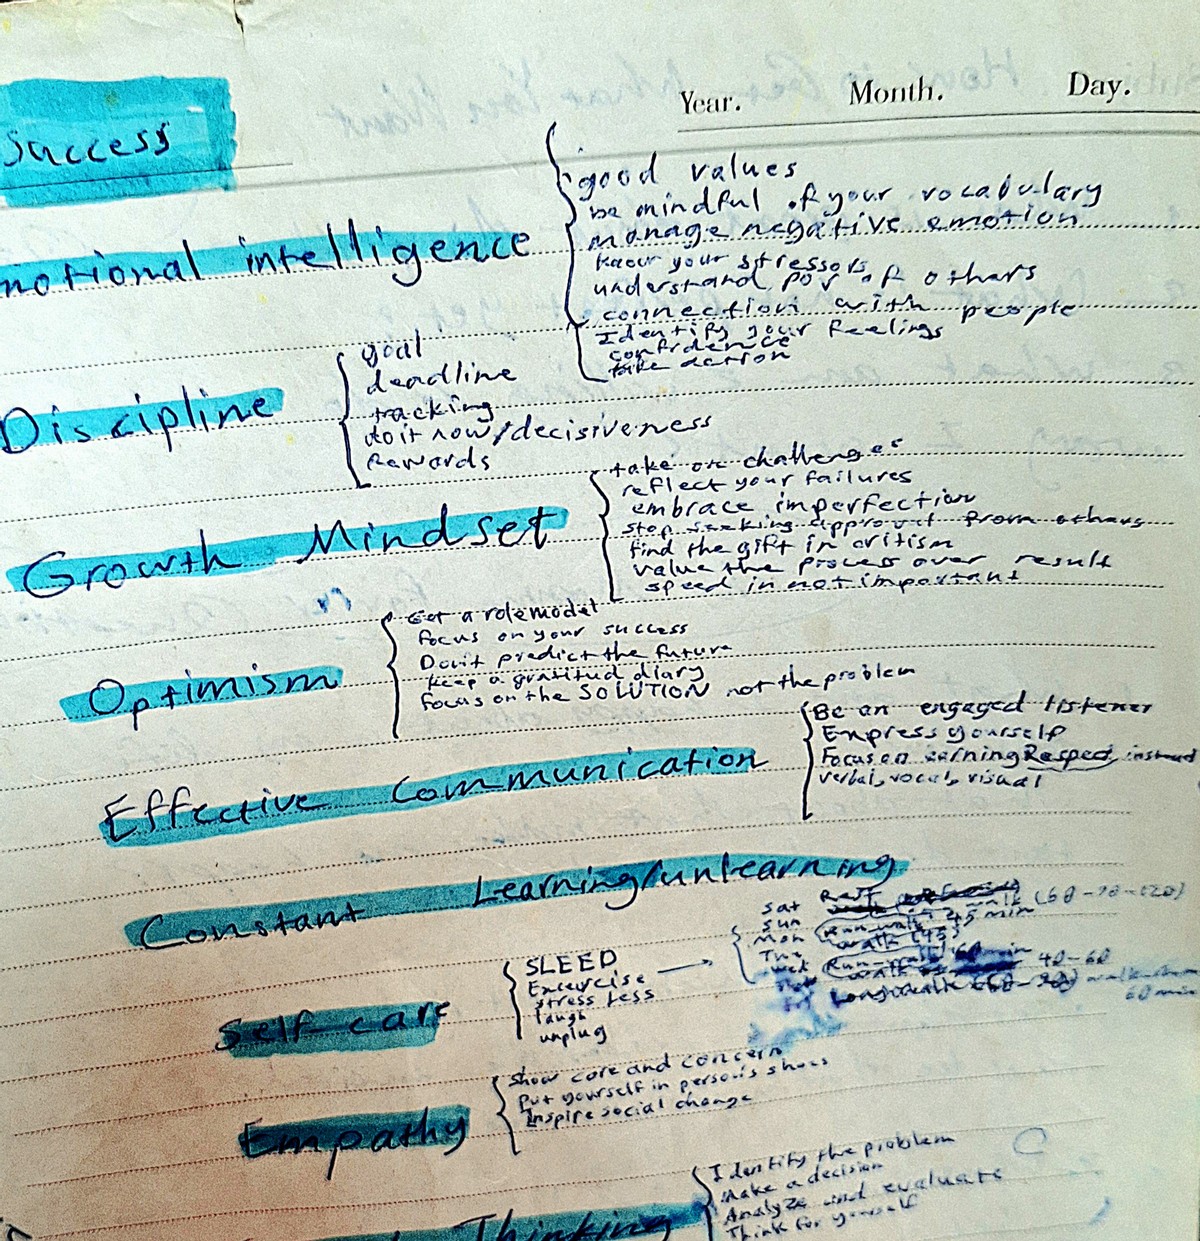 Year. Month. Day.
Success
motional intelligence
good values
be mindful of your vocabulary
manage negative emotion
know your stressors
understand pov of others
connection with people
Identify your feelings
confidence
take action
Discipline
goal
deadline
tracking
do it now/decisiveness
Rewards
Growth Mindset
take on challenges
reflect your failures
embrace imperfection
stop seeking approval from others
find the gift in critism
value the process over result
speed in not important
Optimism
Get a rolemodel
Focus on your success
Don't predict the future
keep a gratitud diary
Focus on the SOLUTION not the problem
Effective Communication
Be an engaged listener
Express yourself
Focus on earning Respect instead
verbal, vocal, visual
Constant Learning/unlearning
Self-care
SLEED
Excercise
stress less
laugh
unplug
Sat Rest
Sun walk
Mon Run-walk 45 min
Tue walk (45)
wed Run-walk 60 min 40-60
Long walk 60 min
Empathy
Show care and concern
Put yourself in person's shoes
Inspire social change
Thinking
Identify the problem
Make a decision
Analyze and evaluate
Think for yourself